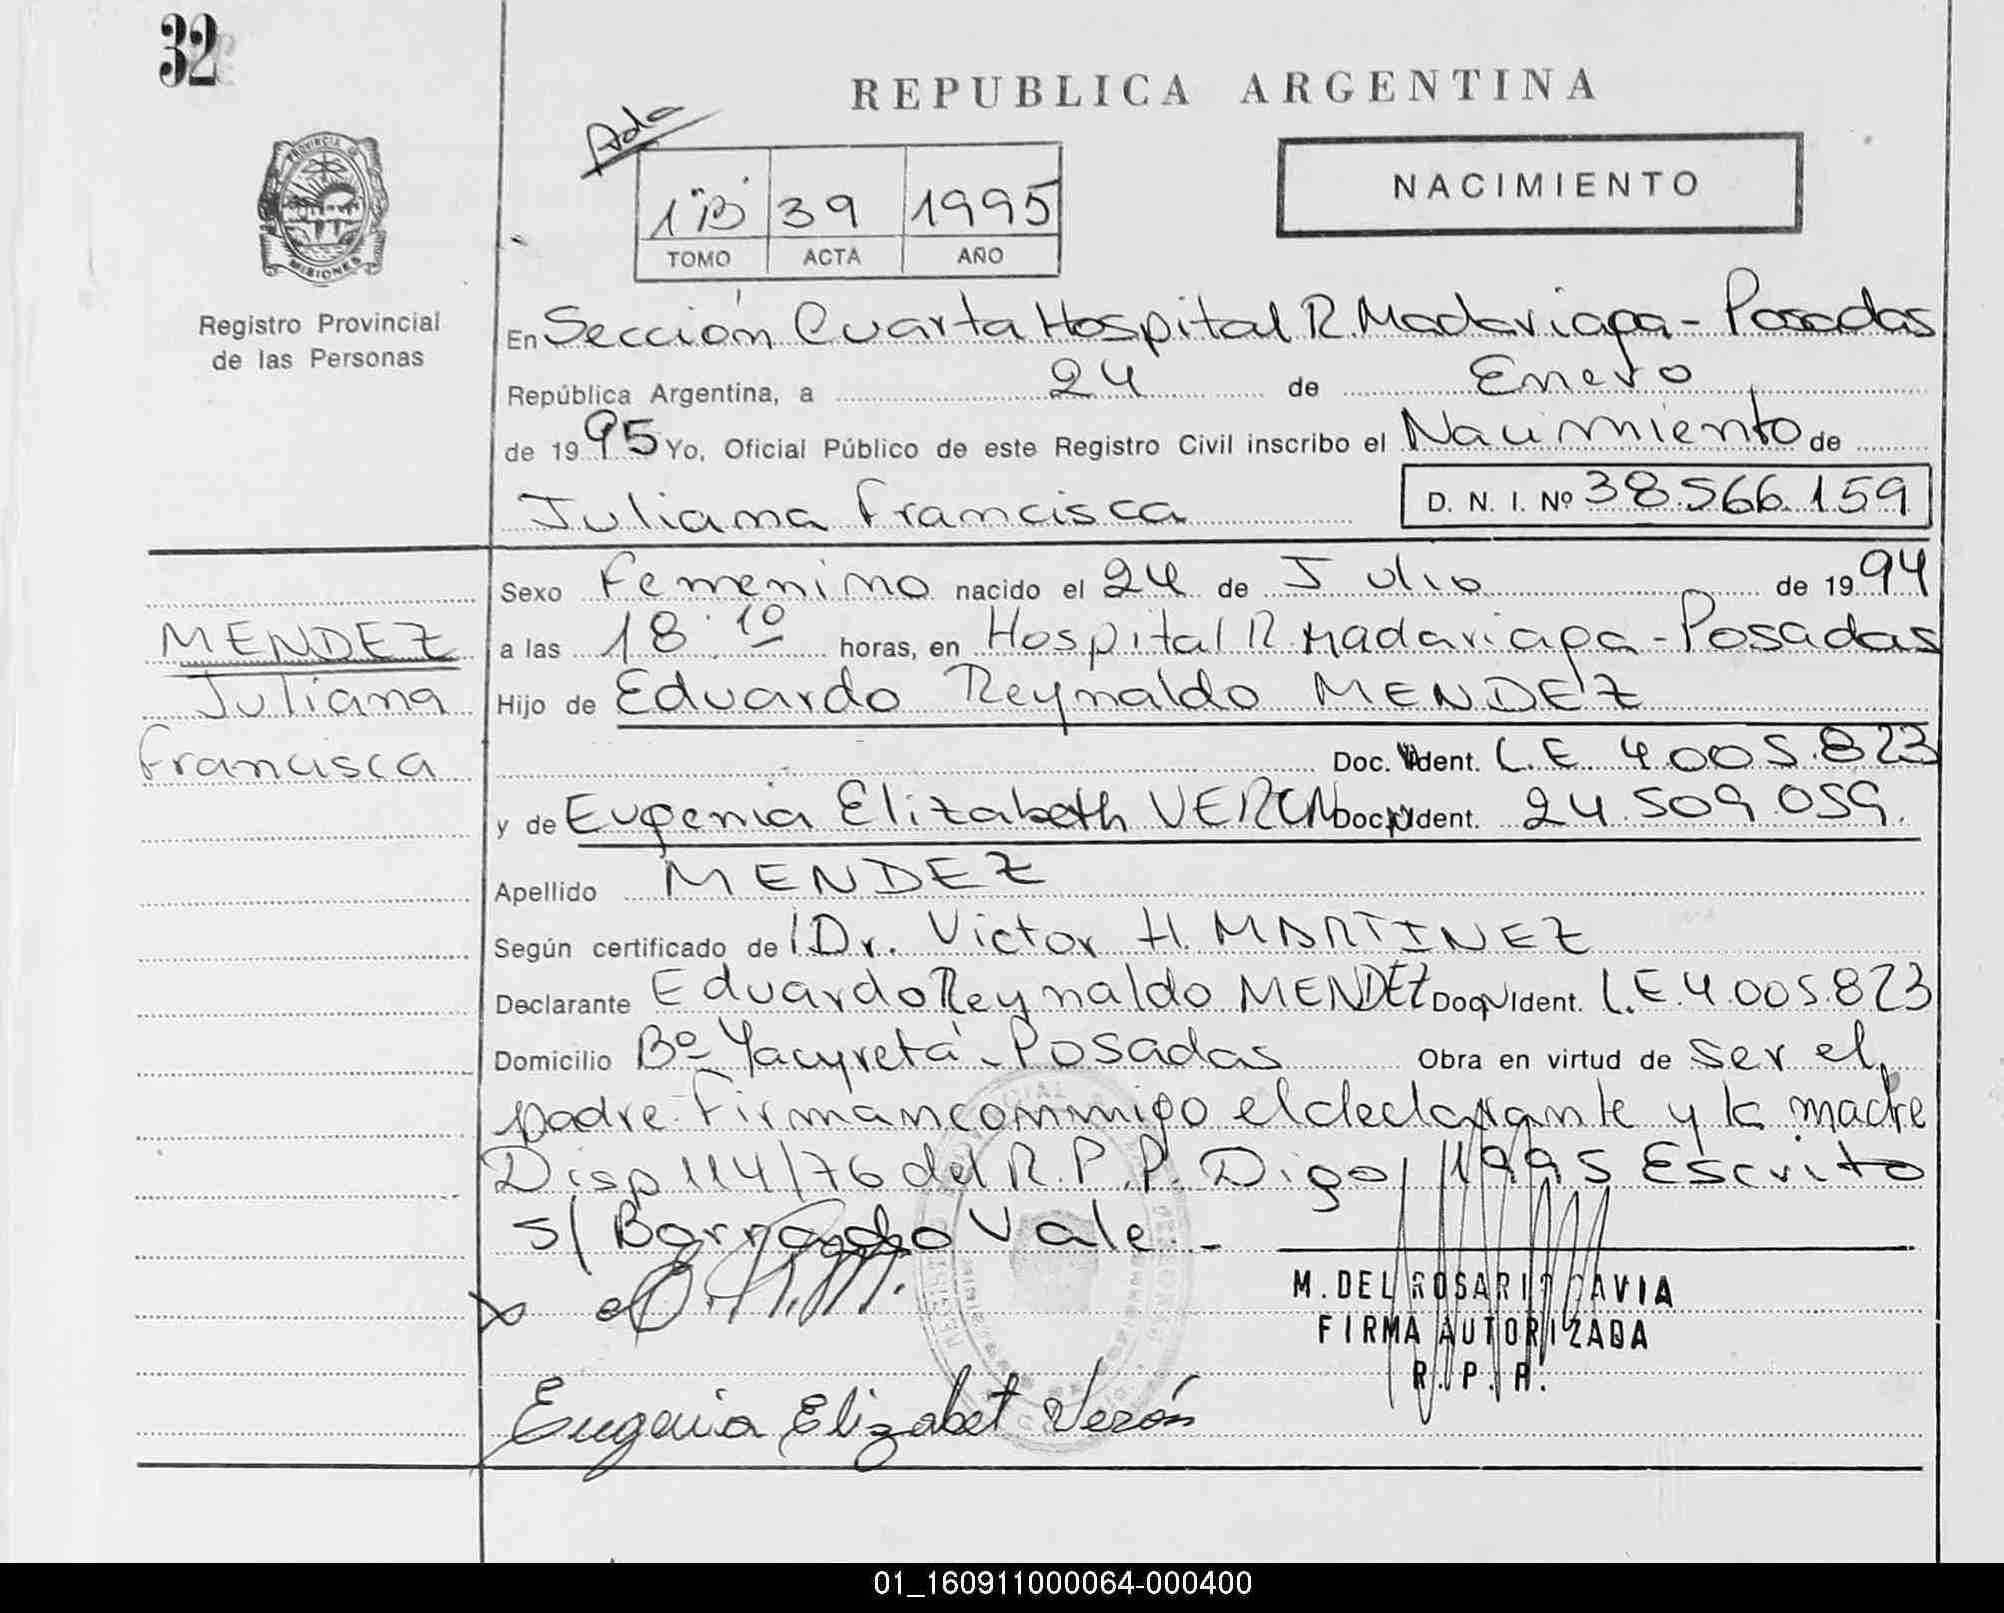 32
REPUBLICA ARGENTINA
Ada
NACIMIENTO
1 "B" 39 1995
TOMO ACTA AÑO
PROVINCIA DE
MISIONES
Registro Provincial
de las Personas
En Sección Cuarta Hospital R. Madariaga - Posadas
República Argentina, a 24 de Enero
de 1995 Yo, Oficial Público de este Registro Civil inscribo el Nacimiento de
Juliana Francisca D. N. I. Nº 38.566.159
Sexo Femenino nacido el 24 de Julio de 1994
MENDEZ
a las 18:10 horas, en Hospital R. Madariaga - Posadas
Juliana
Hijo de Eduardo Reynaldo MENDEZ
Francisca
Doc. Ident. L.E. 4.005.823
y de Eugenia Elizabeth VERON Doc. Ident. 24.509.059.
Apellido MENDEZ
Según certificado de Dr. Victor H. MARTINEZ
Declarante Eduardo Reynaldo MENDEZ Doc. Ident. L.E. 4.005.823
Domicilio Bº Yacyretá - Posadas Obra en virtud de ser el
padre. Firman conmigo el declarante y la madre
Disp 114/76 del R.P.P. Digo / 1995 Escrito
s/ Borrado Vale. -
M. DEL ROSARIO
FIRMA AUTORIZADA
R. P. P.
Eugenia Elizabet Verón
01_160911000064-000400